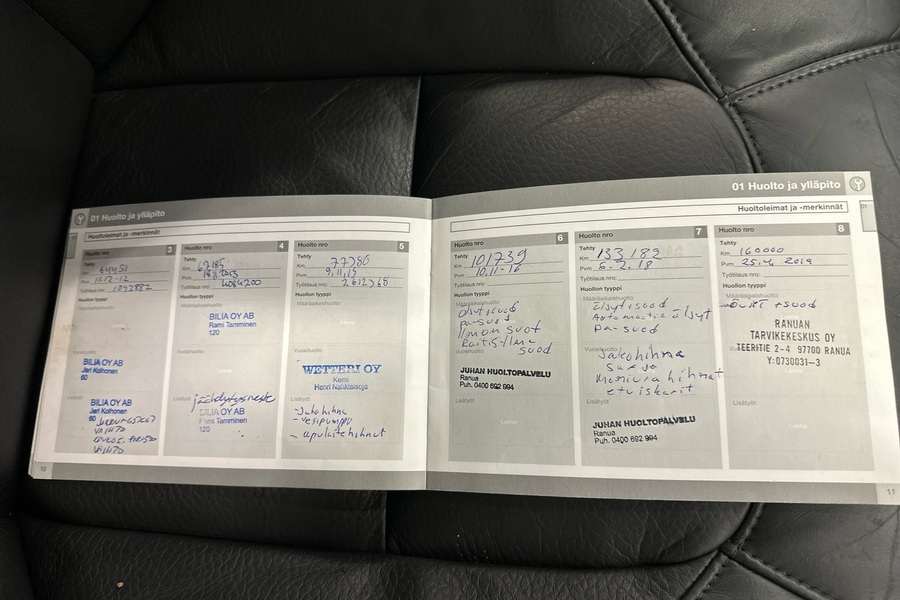 01 Huolto ja ylläpito
Huoltoleimat ja -merkinnät
Huolto nro 3
Tehty
Km 64451
Pvm 14.12-12
Työtilaus nro: 1092882
Huollon tyyppi
Määräaikaishuolto
Vuosihuolto
BILIA OY AB
Jari Kolhonen
60
Lisätyöt
BILIA OY AB
Jari Kolhonen
60
VAIHTO
VAIHTO
Huolto nro 4
Tehty
Km
Pvm
Työtilaus nro:
Huollon tyyppi
Määräaikaishuolto
BILIA OY AB
Rami Tamminen
120
Vuosihuolto
Lisätyöt
jäähdytysneste
BILIA OY AB
Rami Tamminen
120
Huolto nro 5
Tehty
Km 77386
Pvm 9.11.15
Työtilaus nro: 2612368
Huollon tyyppi
Määräaikaishuolto
Vuosihuolto
WETTERI OY
Kemi
Henri Naskalsoja
Lisätyöt
- Jakohihna
- vesipumppu
- apulaitehihnat
10
01 Huolto ja ylläpito
Huoltoleimat ja -merkinnät
Huolto nro 6
Tehty
Km 101739
Pvm 10.11-16
Työtilaus nro:
Huollon tyyppi
Määräaikaishuolto
öljyt suod
pa-suod
ilman suot
Raitisilma
suod
Vuosihuolto
JUHAN HUOLTOPALVELU
Ranua
Puh. 0400 692 994
Lisätyöt
Leima
Huolto nro 7
Tehty
Km 133182
Pvm 6.2.18
Työtilaus nro:
Huollon tyyppi
Määräaikaishuolto
öljyt suod
Automaatti öljyt
pa-suod
Vuosihuolto
Jakohihna
sarja
Moniura hihnat
etuiskarit
Lisätyöt
JUHAN HUOLTOPALVELU
Ranua
Puh. 0400 692 994
Huolto nro 8
Tehty
Km 160000
Pvm 25.4 2019
Työtilaus nro:
Huollon tyyppi
Määräaikaishuolto
+ suod
RANUAN
TARVIKEKESKUS OY
TEERITIE 2-4 97700 RANUA
Y:0730031-3
Vuosihuolto
Lisätyöt
Leima
11